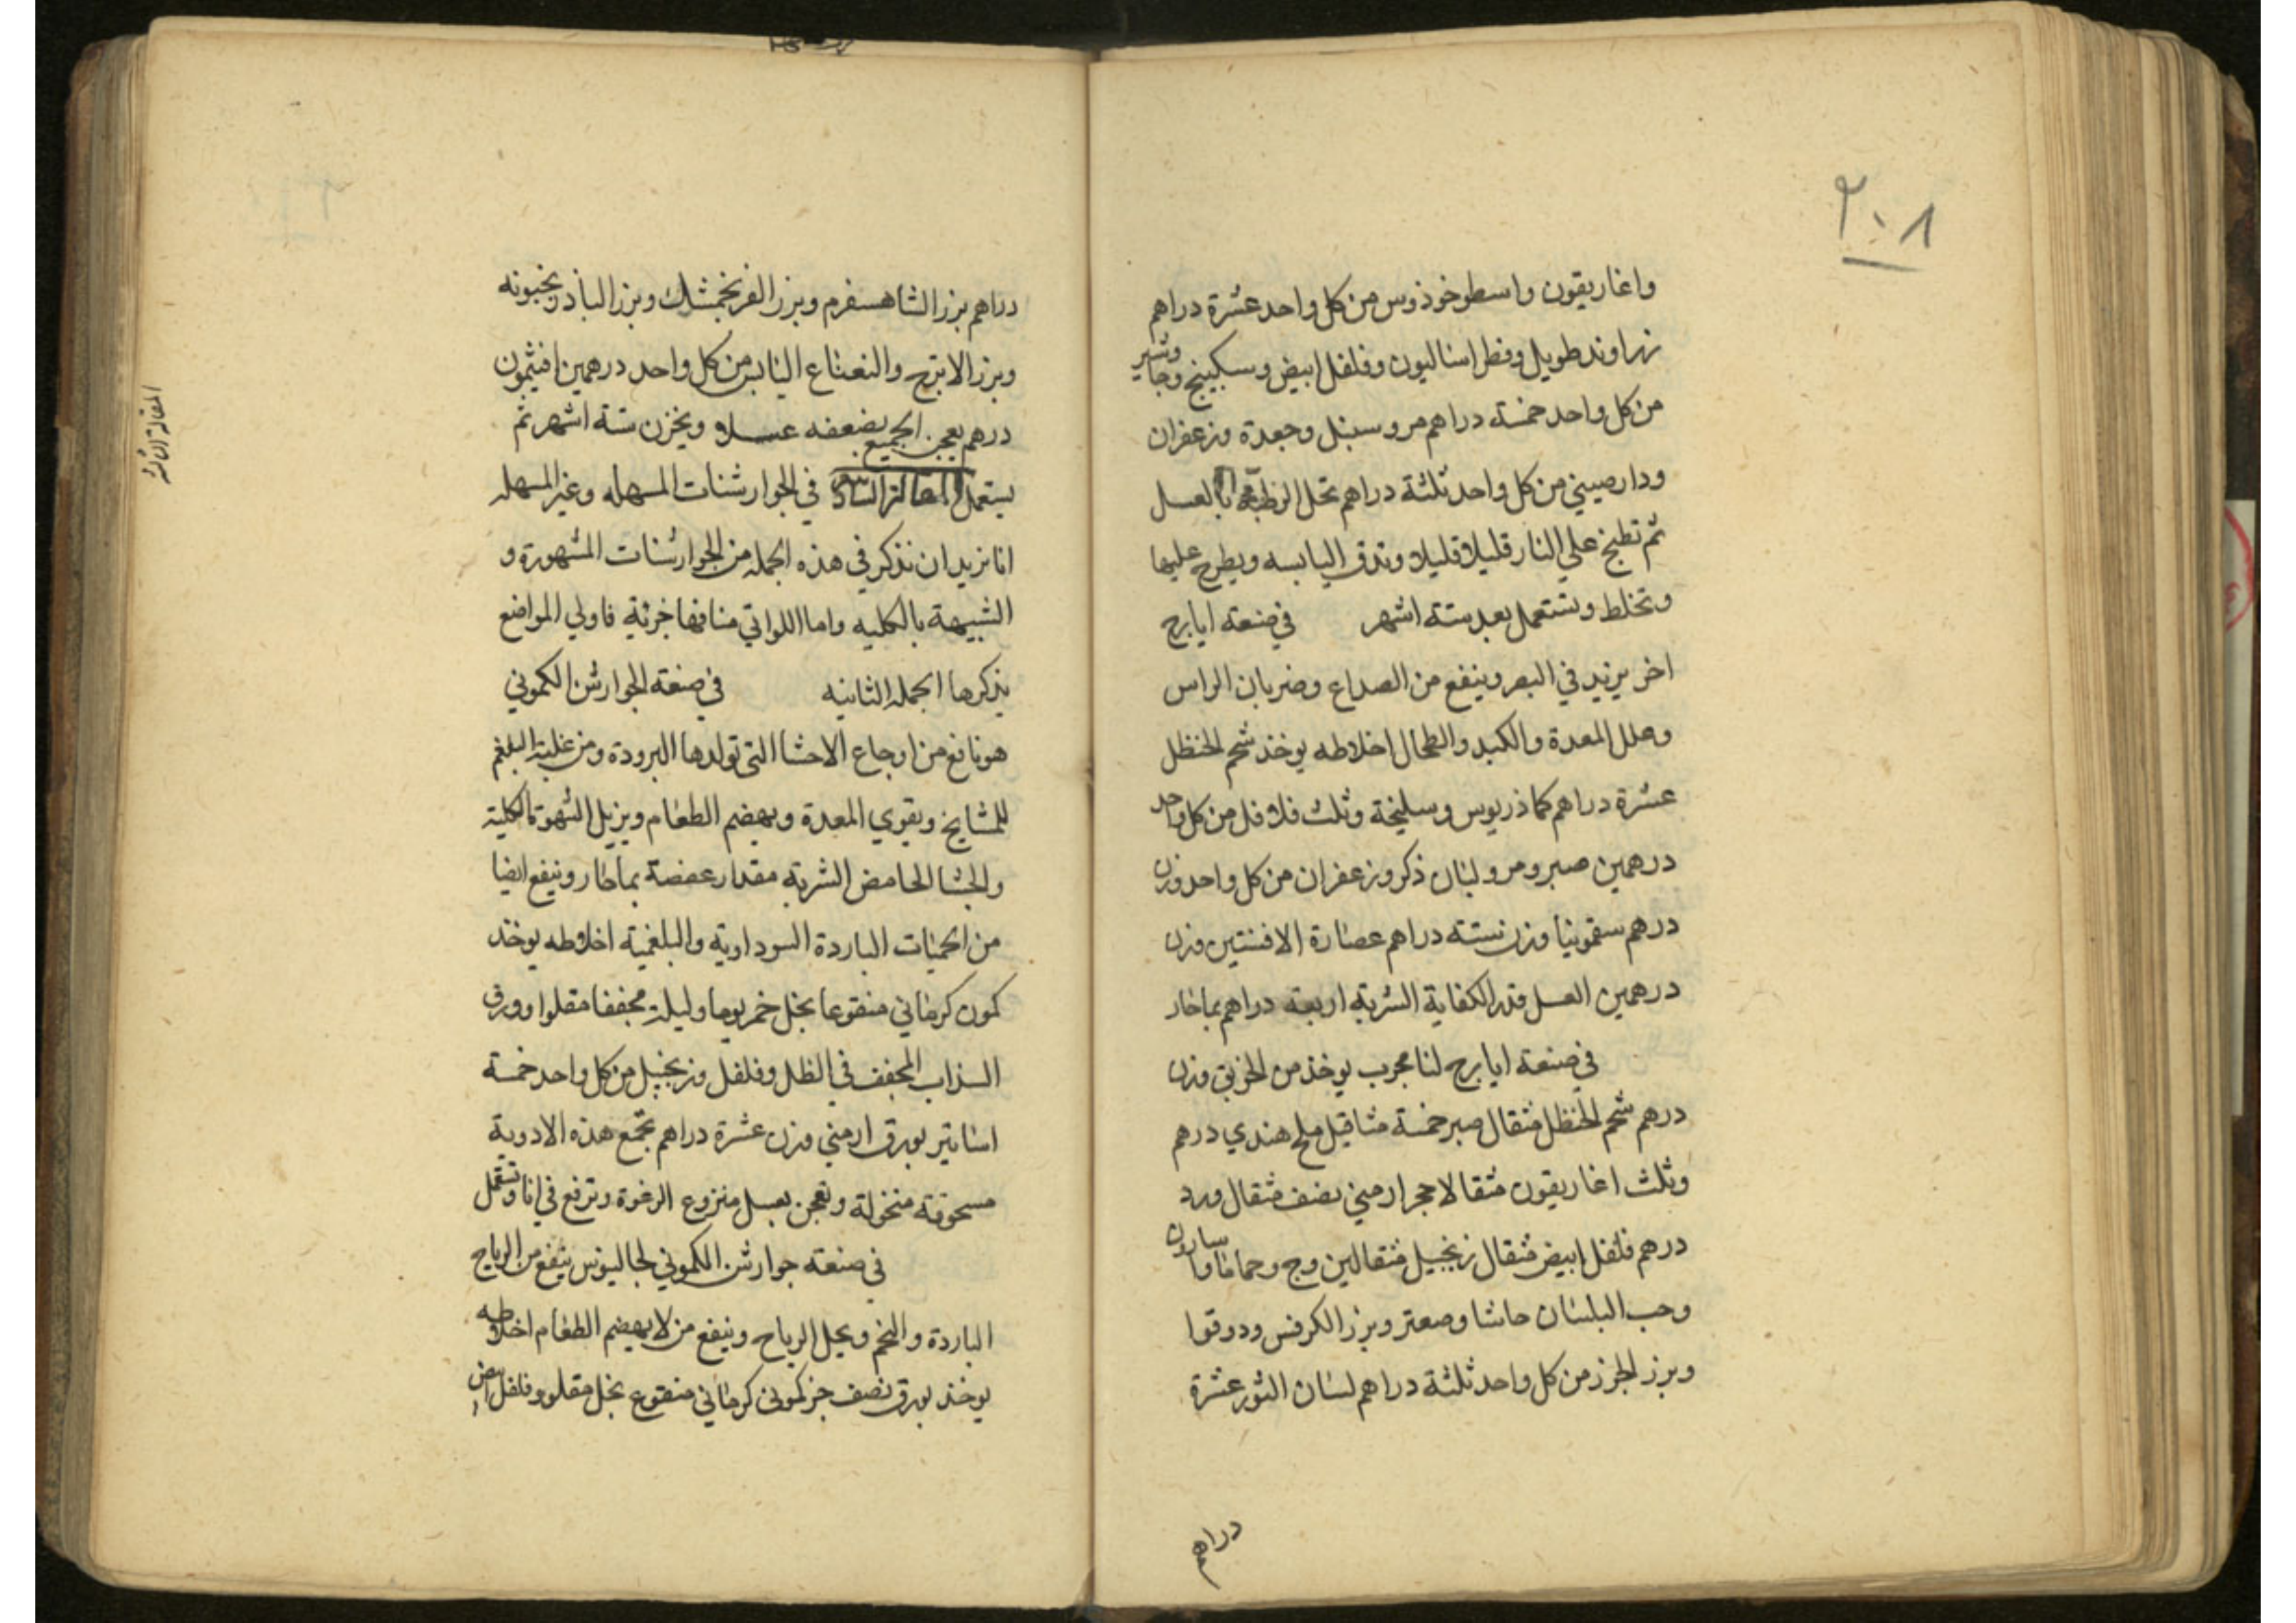 ٢٠٨
واغاريقون واسطوخوذوس من كل واحد عشرة دراهم
زراوند طويل وفطراساليون وفلفل ابيض وسكبينج وجاوشير
من كل واحد خمسة دراهم مر وسنبل وجعدة وزعفران
ودارصيني من كل واحد ثلثة دراهم تحل الرطبة بالعسل
ثم تطبخ علي النار قليلا قليلا وتدق اليابسه ويطرح عليها
وتخلط وتستعمل بعد ستة اشهر في صنعة ايارج
اخر يزيد في البصر وينفع من الصداع وضربان الراس
وعلل المعدة والكبد والطحال اخلاطه يوخذ شحم الحنظل
عشرة دراهم كماذريوس وسليخة وثلث فلافل من كل واحد
درهمين صبر ومر ولبان ذكر وزعفران من كل واحد وزن
درهم سقمونيا وزن ستة دراهم عصارة الافسنتين وزن
درهمين العسل قدر الكفاية الشربة اربعة دراهم بماحار
في صنعة ايارج لنا مجرب يوخذ من الخربق وزن
درهم شحم الحنظل مثقال صبر خمسة مثاقيل ملح هندي درهم
وثلث اغاريقون مثقالا حجر ارمني نصف مثقال ورد
درهم فلفل ابيض مثقال زنجبيل مثقالين وج وحماما واسارون
وحب البلسان حاشا وصعتر وبزر الكرفس ودوقوا
وبزر الجزر من كل واحد ثلثة دراهم لسان الثور عشرة
دراهم
دراهم بزر الشاهسفرم وبزر الفرنجمشك وبزر الباذرنجبونه
وبزر الاترج والنعناع اليابس من كل واحد درهمين افثيمون
درهم يعجن الجميع بضعفه عسلا ويخزن ستة اشهر ثم
يستعمل المقالة السادسة في الجوارشنات المسهله وغير المسهله
انا نريد ان نذكر في هذه الجملة من الجوارشنات المشهورة و
الشبيهة بالكليه واما اللواتي منافعها جزئية فاولي المواضع
بذكرها الجملة الثانيه في صنعة الجوارشن الكموني
هو نافع من اوجاع الاحشا التي تولدها البرودة ومن غلبة البلغم
للمشايخ ويقوي المعدة ويهضم الطعام ويزيل الشهوة الكلبية
والجشا الحامض الشربة مقدار عفصة بماحار وينفع ايضا
من الحميات الباردة السوداوية والبلغمية اخلاطه يوخذ
كمون كرماني منقوعا بخل خمر يوما وليلة مجففا مقلوا وورق
السذاب المجفف في الظل وفلفل وزنجبيل من كل واحد خمسة
اساتير بورق ارمني وزن عشرة دراهم تجمع هذه الادوية
مسحوقة منخولة وتعجن بعسل منزوع الرغوة وترفع في انا وتستعمل
في صنعة جوارشن الكموني لجالينوس ينفع من الرياح
الباردة والتخم ويحل الرياح وينفع من لا يهضم الطعام اخلاطه
يوخذ بورق نصف جز كمون كرماني منقوع بخل مقلو وفلفل ابيض